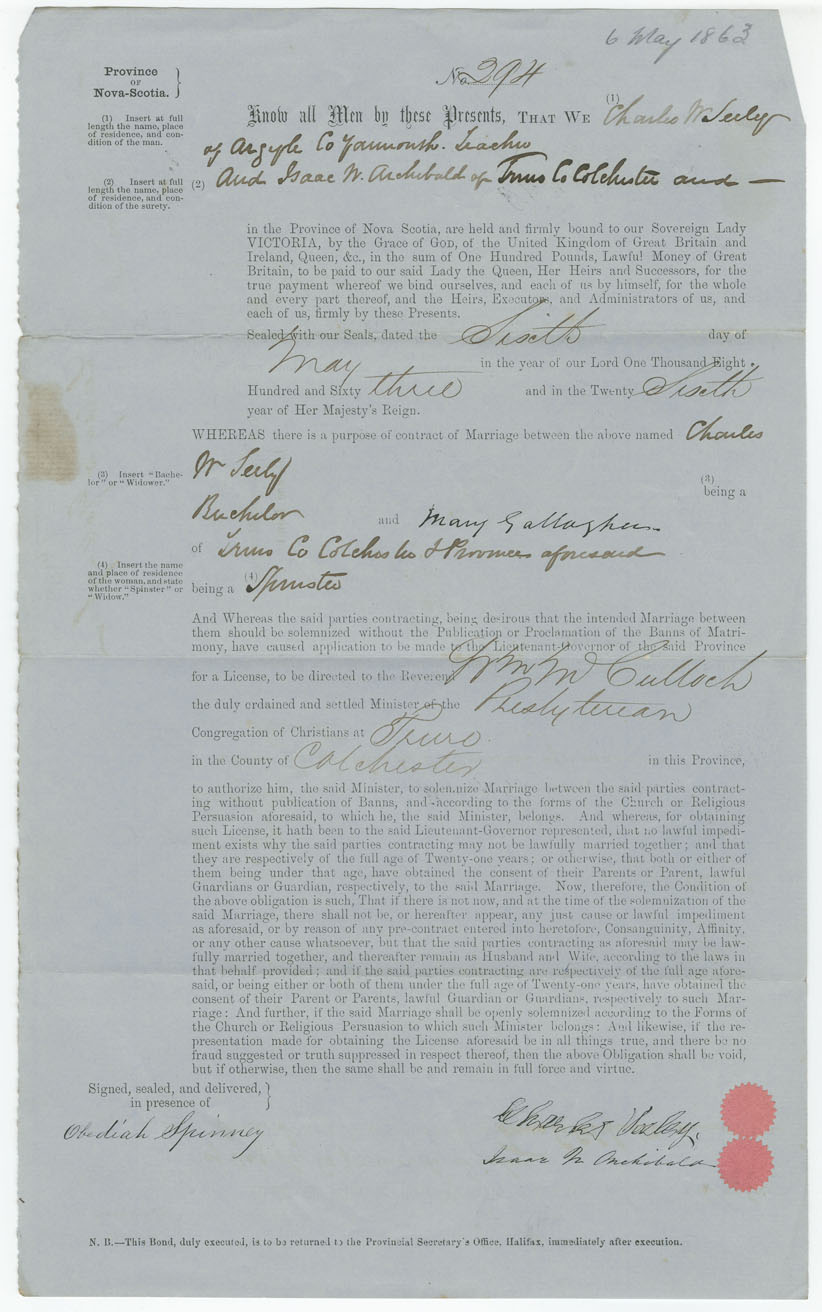 6 May 1863
Province
OF
Nova-Scotia.
No. 294
(1) Insert at full
length the name, place
of residence, and con-
dition of the man.
Know all Men by these Presents, THAT WE (1) Charles W Seely
of Argyle Co Yarmouth. Teacher
(2) Insert at full
length the name, place
of residence, and con-
dition of the surety.
(2) And Isaac W. Archibald of Truro Co Colchester and —
in the Province of Nova Scotia, are held and firmly bound to our Sovereign Lady
VICTORIA, by the Grace of GOD, of the United Kingdom of Great Britain and
Ireland, Queen, &c., in the sum of One Hundred Pounds, Lawful Money of Great
Britain, to be paid to our said Lady the Queen, Her Heirs and Successors, for the
true payment whereof we bind ourselves, and each of us by himself, for the whole
and every part thereof, and the Heirs, Executors, and Administrators of us, and
each of us, firmly by these Presents.
Sealed with our Seals, dated the Sixth day of
May in the year of our Lord One Thousand Eight
Hundred and Sixty three and in the Twenty Sixth
year of Her Majesty's Reign.
WHEREAS there is a purpose of contract of Marriage between the above named Charles
W Seely
(3) Insert "Bache-
lor" or "Widower."
(3)
being a
Bachelor and Mary Gallagher
of Truro Co Colchester & Province aforesaid
(4) Insert the name
and place of residence
of the woman, and state
whether "Spinster" or
"Widow."
being a (4) Spinster
And Whereas the said parties contracting, being desirous that the intended Marriage between
them should be solemnized without the Publication or Proclamation of the Banns of Matri-
mony, have caused application to be made to the Lieutenant-Governor of the said Province
for a License, to be directed to the Reverend Wm McCulloch
the duly ordained and settled Minister of the Presbyterean
Congregation of Christians at Truro
in the County of Colchester in this Province,
to authorize him, the said Minister, to solemnize Marriage between the said parties contract-
ing without publication of Banns, and according to the forms of the Church or Religious
Persuasion aforesaid, to which he, the said Minister, belongs. And whereas, for obtaining
such License, it hath been to the said Lieutenant-Governor represented, that no lawful impedi-
ment exists why the said parties contracting may not be lawfully married together; and that
they are respectively of the full age of Twenty-one years; or otherwise, that both or either of
them being under that age, have obtained the consent of their Parents or Parent, lawful
Guardians or Guardian, respectively, to the said Marriage. Now, therefore, the Condition of
the above obligation is such, That if there is not now, and at the time of the solemnization of the
said Marriage, there shall not be, or hereafter appear, any just cause or lawful impediment
as aforesaid, or by reason of any pre-contract entered into heretofore, Consanguinity, Affinity,
or any other cause whatsoever, but that the said parties contracting as aforesaid may be law-
fully married together, and thereafter remain as Husband and Wife, according to the laws in
that behalf provided; and if the said parties contracting are respectively of the full age afore-
said, or being either or both of them under the full age of Twenty-one years, have obtained the
consent of their Parent or Parents, lawful Guardian or Guardians, respectively to such Mar-
riage: And further, if the said Marriage shall be openly solemnized according to the Forms of
the Church or Religious Persuasion to which such Minister belongs: And likewise, if the re-
presentation made for obtaining the License aforesaid be in all things true, and there be no
fraud suggested or truth suppressed in respect thereof, then the above Obligation shall be void,
but if otherwise, then the same shall be and remain in full force and virtue.
Signed, sealed, and delivered,
in presence of
Obediah Spinney
Charles Seeley.
Isaac W Archibald
N. B.—This Bond, duly executed, is to be returned to the Provincial Secretary's Office, Halifax, immediately after execution.